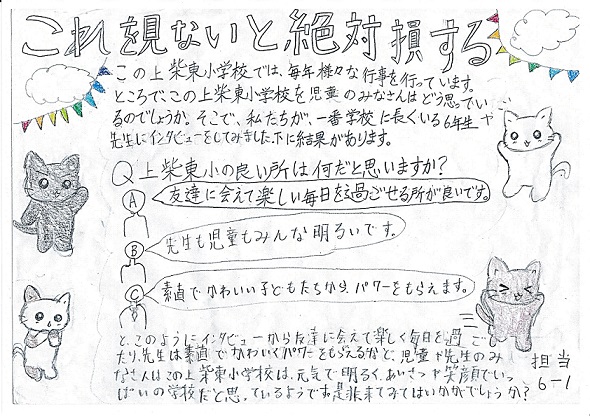 これを見ないと絶対損する
この上柴東小学校では、毎年様々な行事を行っています。
ところで、この上柴東小学校を児童のみなさんはどう思ってい
るのでしょうか。そこで、私たちが、一番学校に長くいる6年生や
先生にインタビューをしてみました。下に結果があります。
Q 上柴東小の良い所は何だと思いますか?
A 友達に会えて楽しい毎日を過ごせる所が良いです。
B 先生も児童もみんな明るいです。
C 素直でかわいい子どもたちから、パワーをもらえます。
と、このようにインタビューから友達に会えて楽しく毎日を過ごし
たり、先生は素直でかわいくパワーをもらえるなど、児童や先生のみ
なさんはこの上柴東小学校は、元気で明るく、あいさつや笑顔でいっ
ぱいの学校だと思っているようです。是非来てみてはいかがでしょうか?
担当
6-1